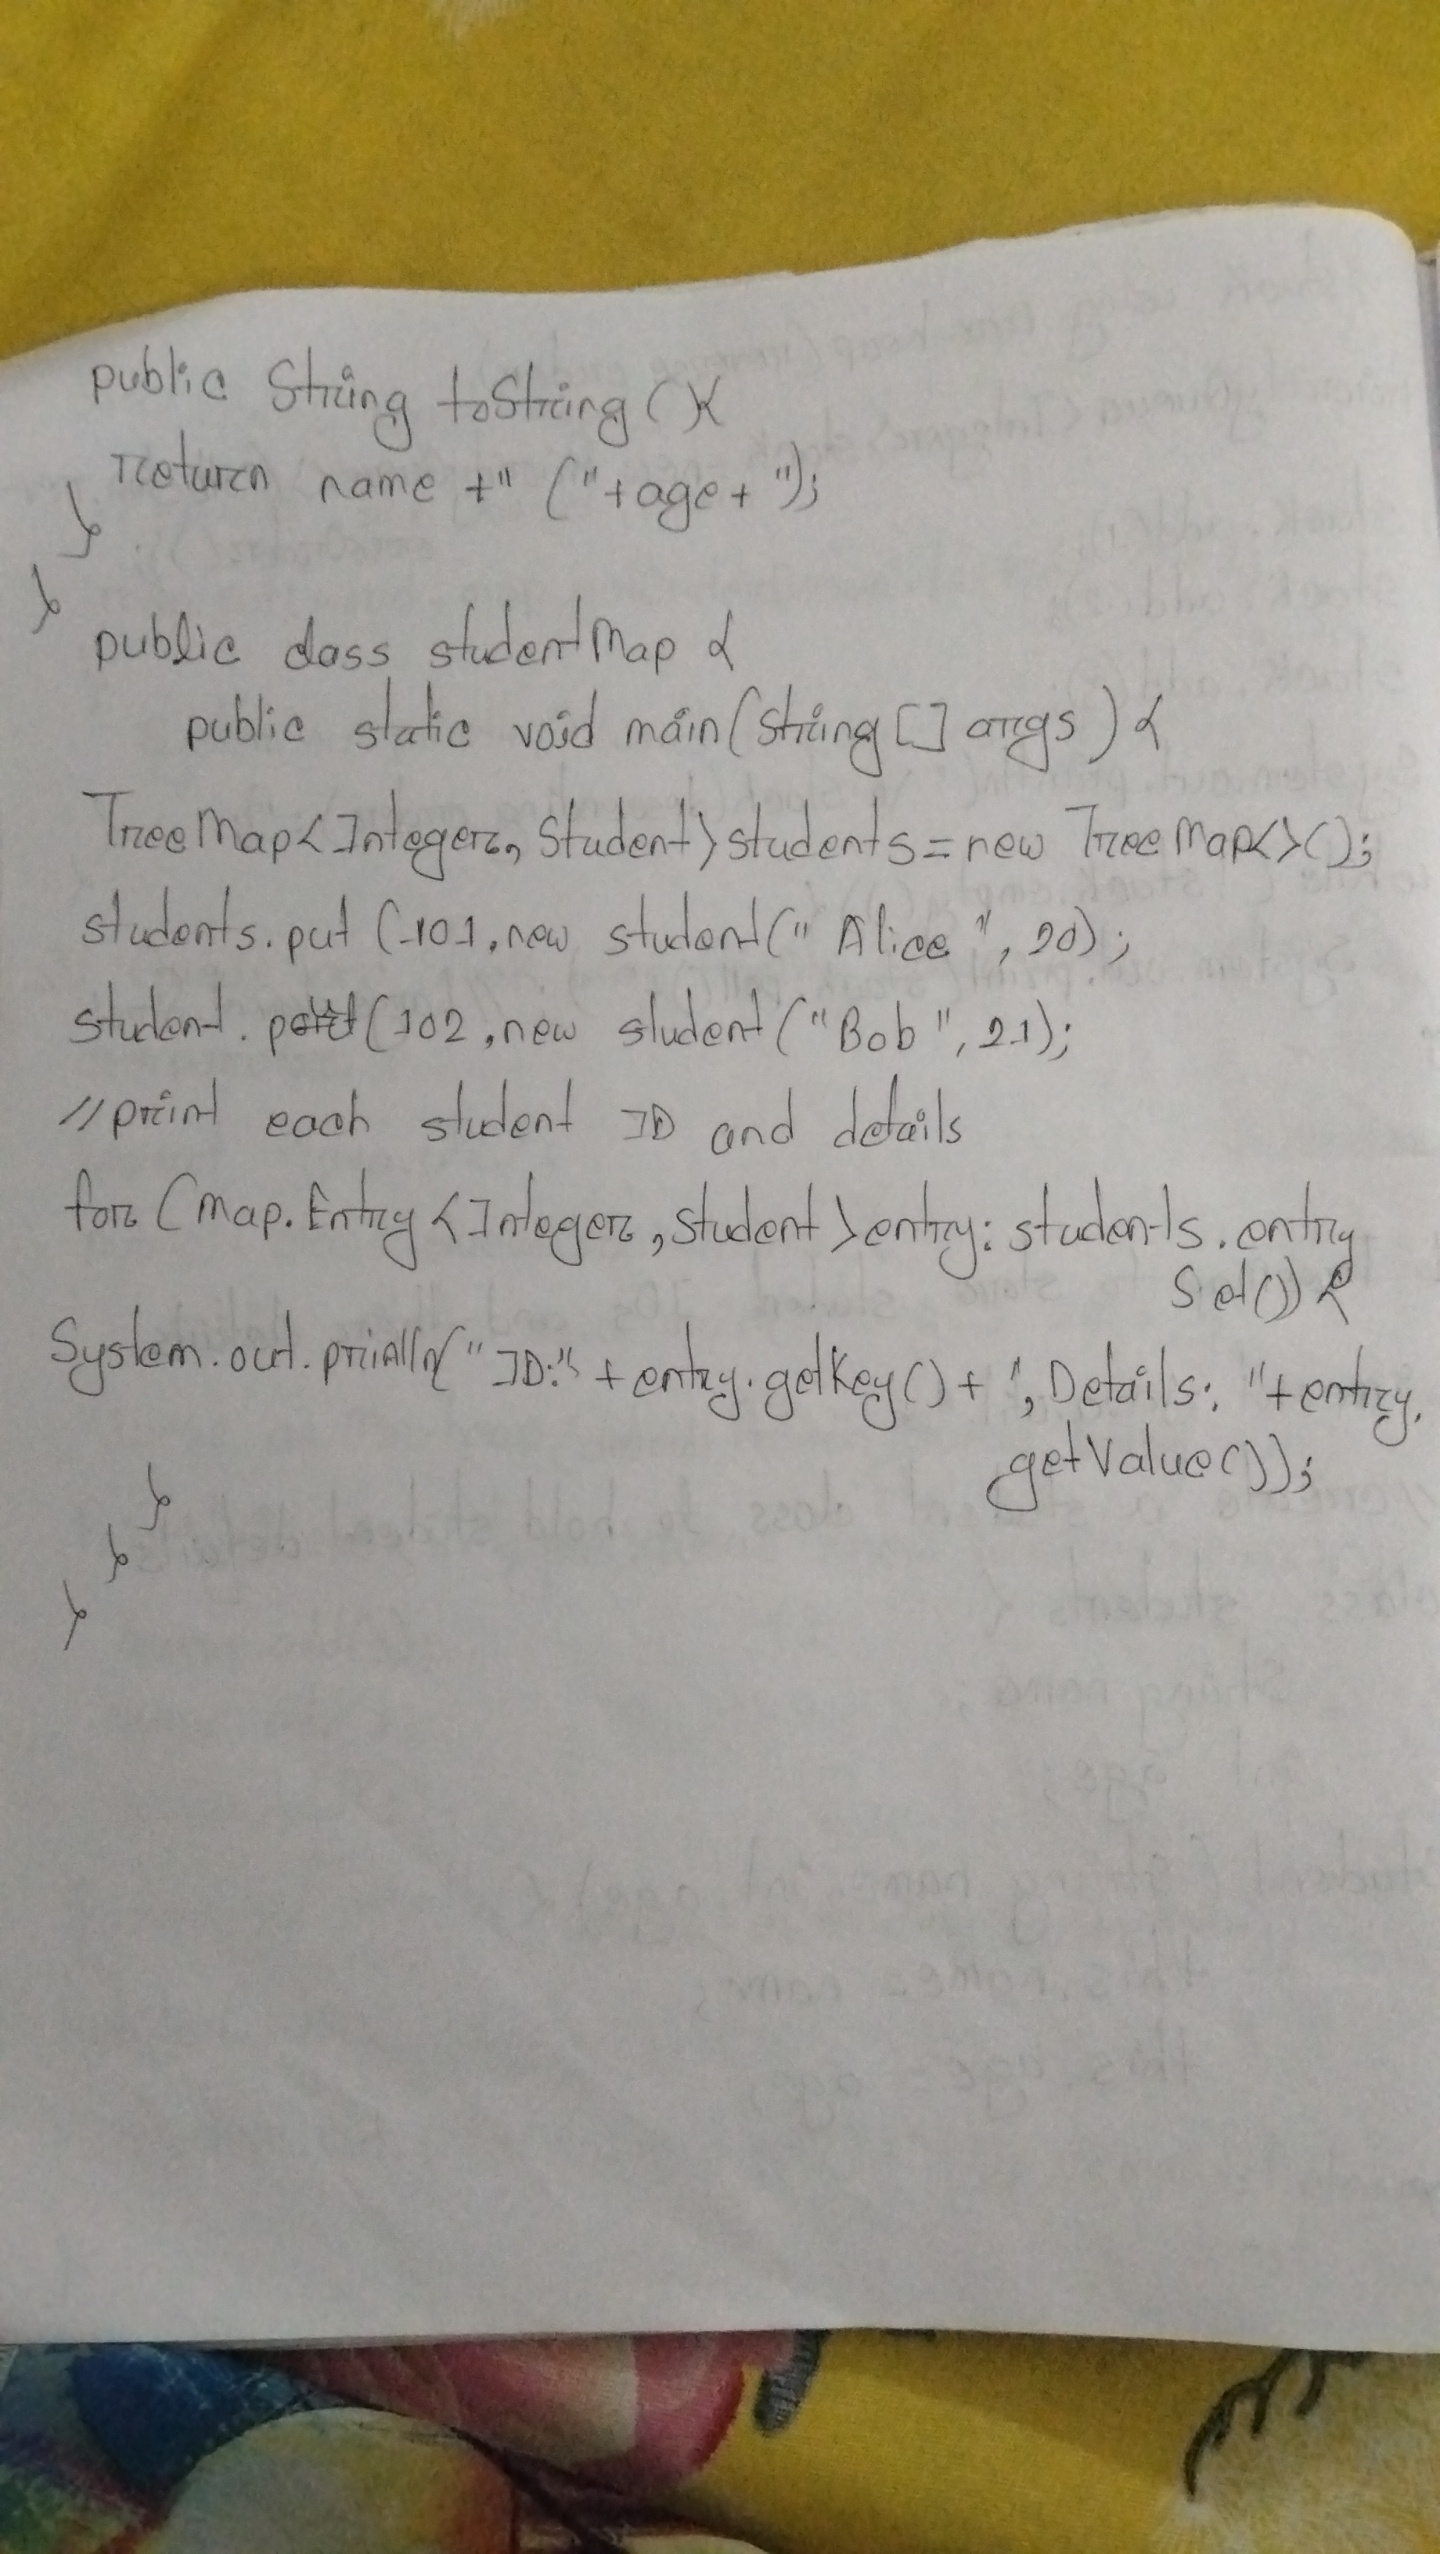 public String toString(){
return name +" ("+age+ ");
}
}
public class studentMap {
public static void main(String[] args) {
TreeMap<Integer, Student>students=new TreeMap<>();
students.put (101,new student(" Alice ", 20);
student. put(102,new student("Bob", 21);
//print each student ID and details
for (map.Entry<Integer,student>entry: students.entry
Set()) {
System.out.println("ID:" + entry.getKey()+ ", Details: "+entry.
getValue());
}
}
}